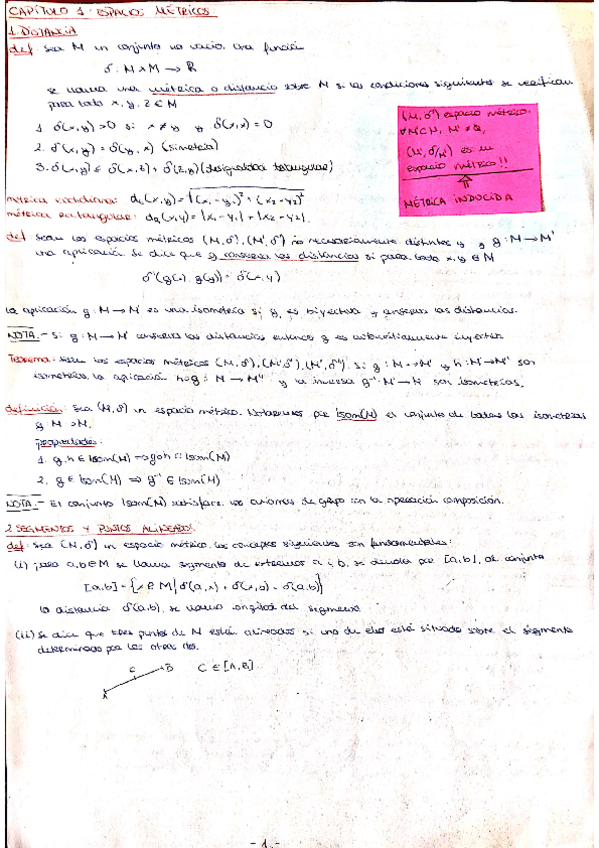 CAPÍTULO 1: ESPACIOS MÉTRICOS
1. DISTANCIA
def Sea M un conjunto no vacío. Una función
δ: M×M → R
se llama una métrica o distancia sobre M si las condiciones siguientes se verifican
para todo x, y, z ∈ M
1. δ(x,y) > 0 si x ≠ y y δ(x,x) = 0
2. δ(x,y) = δ(y,x) (simetría)
3. δ(x,y) ≤ δ(x,z) + δ(z,y) (desigualdad triangular)
(M, δ) espacio métrico.
∀ M' ⊂ M, M' ≠ ∅,
(M', δ/M') es un
espacio métrico!!
⇑
MÉTRICA INDUCIDA
métrica euclidiana: d₁(x,y) = √(x₁-y₁)² + (x₂-y₂)²
métrica rectangular: d₂(x,y) = |x₁-y₁| + |x₂-y₂|.
def Sean los espacios métricos (M, δ), (M', δ') no necesariamente distintos y g: M → M'
una aplicación. Se dice que g conserva las distancias si para todo x, y ∈ M
δ'(g(x), g(y)) = δ(x,y)
La aplicación g: M → M' es una isometría si g es biyectiva y conserva las distancias.
NOTA.- Si g: M → M' conserva las distancias entonces g es automáticamente inyectiva.
Teorema: Sean los espacios métricos (M, δ), (M', δ'), (M'', δ''). Si g: M → M' y h: M' → M'' son
isometrías, la aplicación h∘g: M → M'' y la inversa g⁻¹: M' → M son isometrías.
definición: Sea (M, δ) un espacio métrico. Notaremos por Isom(M) el conjunto de todas las isometrías
g: M → M.
propiedades:
1. g, h ∈ Isom(M) ⇒ g∘h ∈ Isom(M)
2. g ∈ Isom(M) ⇒ g⁻¹ ∈ Isom(M)
NOTA.- El conjunto Isom(M) satisface los axiomas de grupo con la operación composición.
2. SEGMENTOS Y PUNTOS ALINEADOS.
def: Sea (M, δ) un espacio métrico. Los conceptos siguientes son fundamentales:
(i) para a, b ∈ M se llama segmento de extremos a i b, se denota por [a,b], al conjunto
[a,b] = {x ∈ M / δ(a,x) + δ(x,b) = δ(a,b)}
La distancia δ(a,b), se llama longitud del segmento
(ii) Se dice que tres puntos de M están alineados si uno de ellos está situado sobre el segmento
determinado por los otros dos.
A C B C ∈ [A,B]
- 1 -